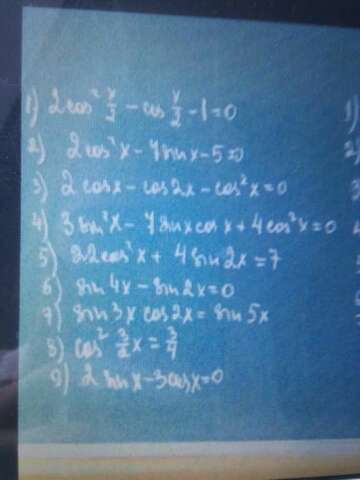 1) 2cos² x/2 - cos x/2 - 1 = 0
2) 2cos²x - 7sinx - 5 = 0
3) 2cosx - cos2x - cos²x = 0
4) 3sin²x - 7sinxcosx + 4cos²x = 0
5) 22cos²x + 4sin2x = 7
6) sin4x - sin2x = 0
7) sin3x cos2x = sin5x
8) cos² 3/2 x = 3/4
9) 2sinx - 3cosx = 0
1)
2)